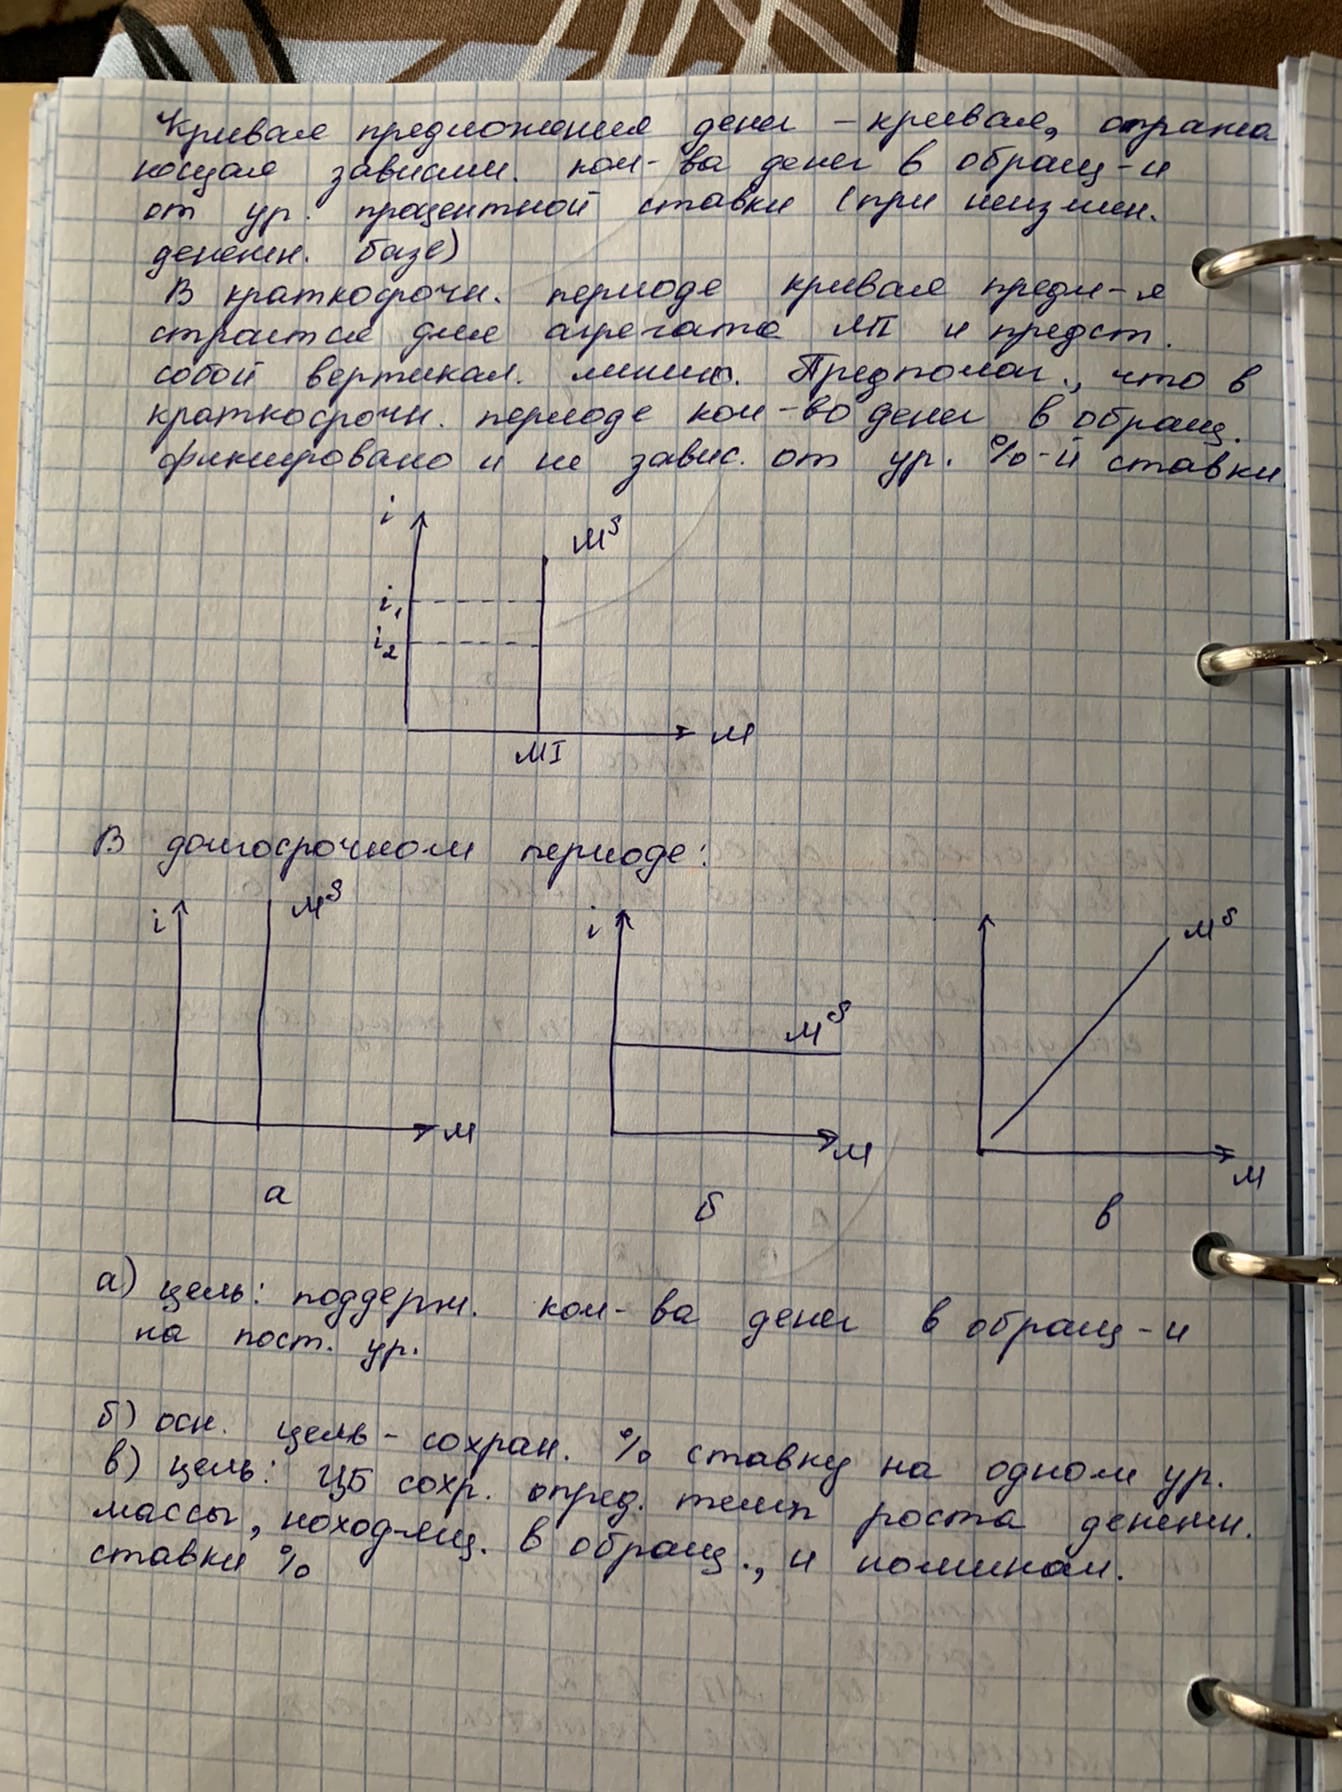 Кривая предложения денег – кривая, отража
ющая зависим. кол-ва денег в обращ-и
от ур. процентной ставки (при неизмен.
денежн. базе)
В краткосрочн. периоде кривая предл-я
строится для агрегата МП и предст.
собой вертикал. линию. Предполаг., что в
краткосрочн. периоде кол-во денег в обращ.
фиксировано и не завис. от ур. %-й ставки.
i
M^S
i₁
i₂
M
MI
В долгосрочном периоде:
i M^S i M^S M^S
M M M
а б в
а) цель: поддерж. кол-ва денег в обращ-и
на пост. ур.
б) осн. цель – сохран. % ставку на одном ур.
в) цель: ЦБ сохр. опред. темп роста денежн.
массы, наход-ящ. в обращ., и номинал.
ставки %